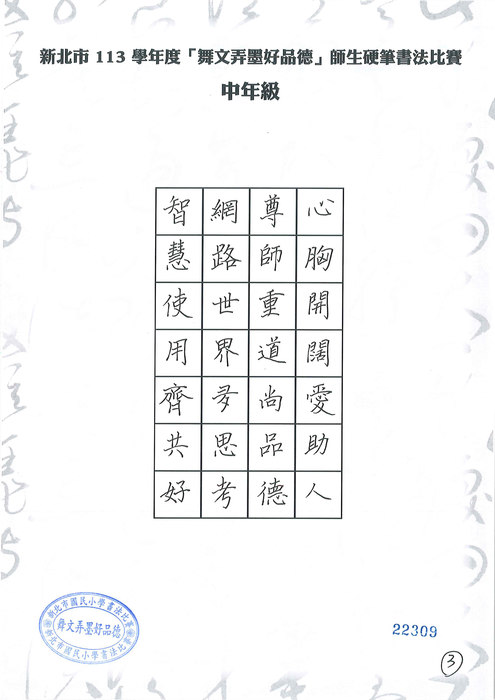 新北市 113 學年度「舞文弄墨好品德」師生硬筆書法比賽
中年級
心胸開闊愛助人
尊師重道尚品德
網路世界多思考
智慧使用齊共好
新北市國民小學書法比賽
舞文弄墨好品德
新北市國民小學書法比賽
22309
3